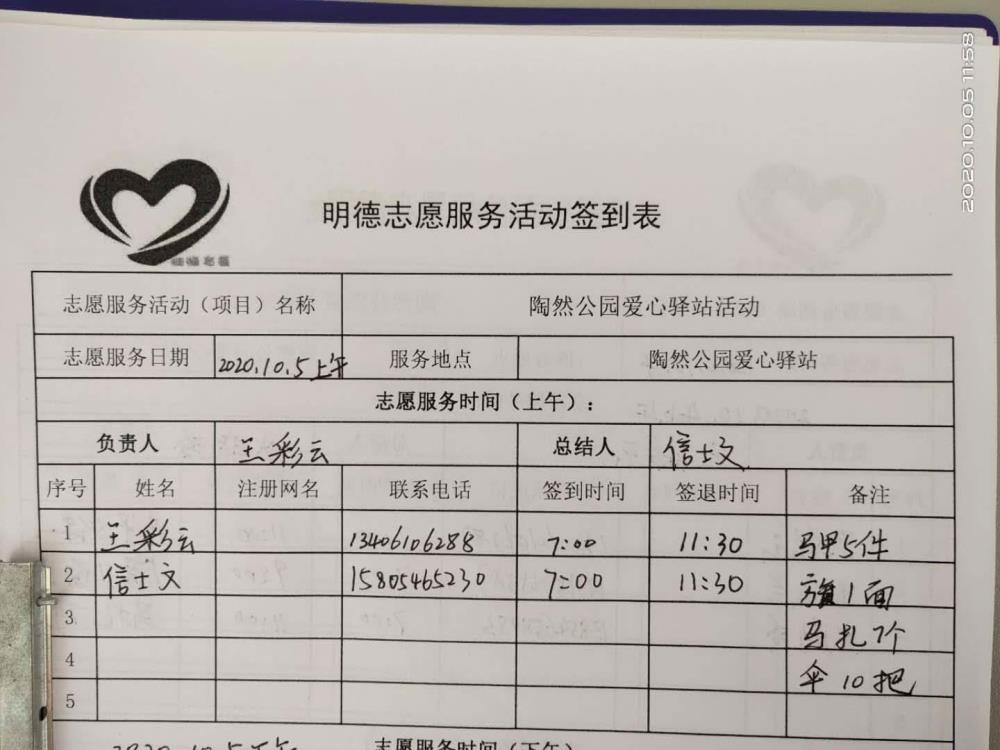 2020.10.05 11:58
明德志愿
明德志愿服务活动签到表
志愿服务活动（项目）名称 陶然公园爱心驿站活动
志愿服务日期 2020.10.5上午 服务地点 陶然公园爱心驿站
志愿服务时间（上午）：
负责人 王彩云 总结人 信士文
序号 姓名 注册网名 联系电话 签到时间 签退时间 备注
1 王彩云 13406106288 7:00 11:30 马甲5件
2 信士文 15805465230 7:00 11:30 旗1面
3 马扎7个
4 伞10把
5
2020.10.5下午 志愿服务时间（下午）